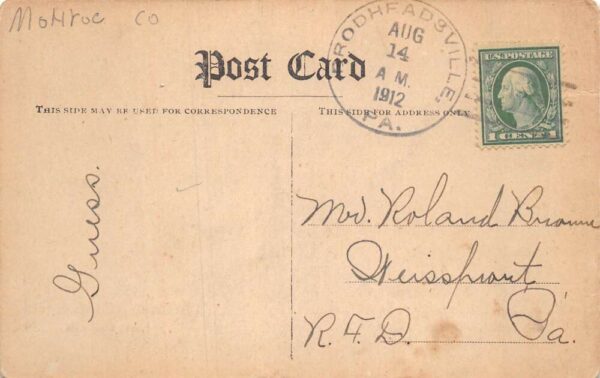 Monroe Co
BRODHEADSVILLE,
AUG
14
A M.
1912
PA.
U.S. POSTAGE
1 CENT 1
Post Card
THIS SIDE MAY BE USED FOR CORRESPONDENCE
THIS SIDE FOR ADDRESS ONLY
Guess.
Mr. Roland Browne
Weissport
R. F. D. Pa.